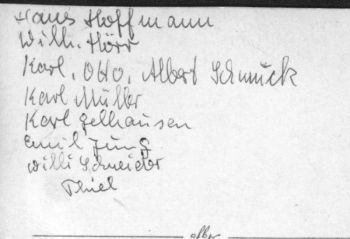 Hans Hoffmann
Wilh. Hörr
Karl, Otto, Albert Schmuck
Karl Müller
Karl Gelhausen
Emil Jung
Willi Schneider
Thiel